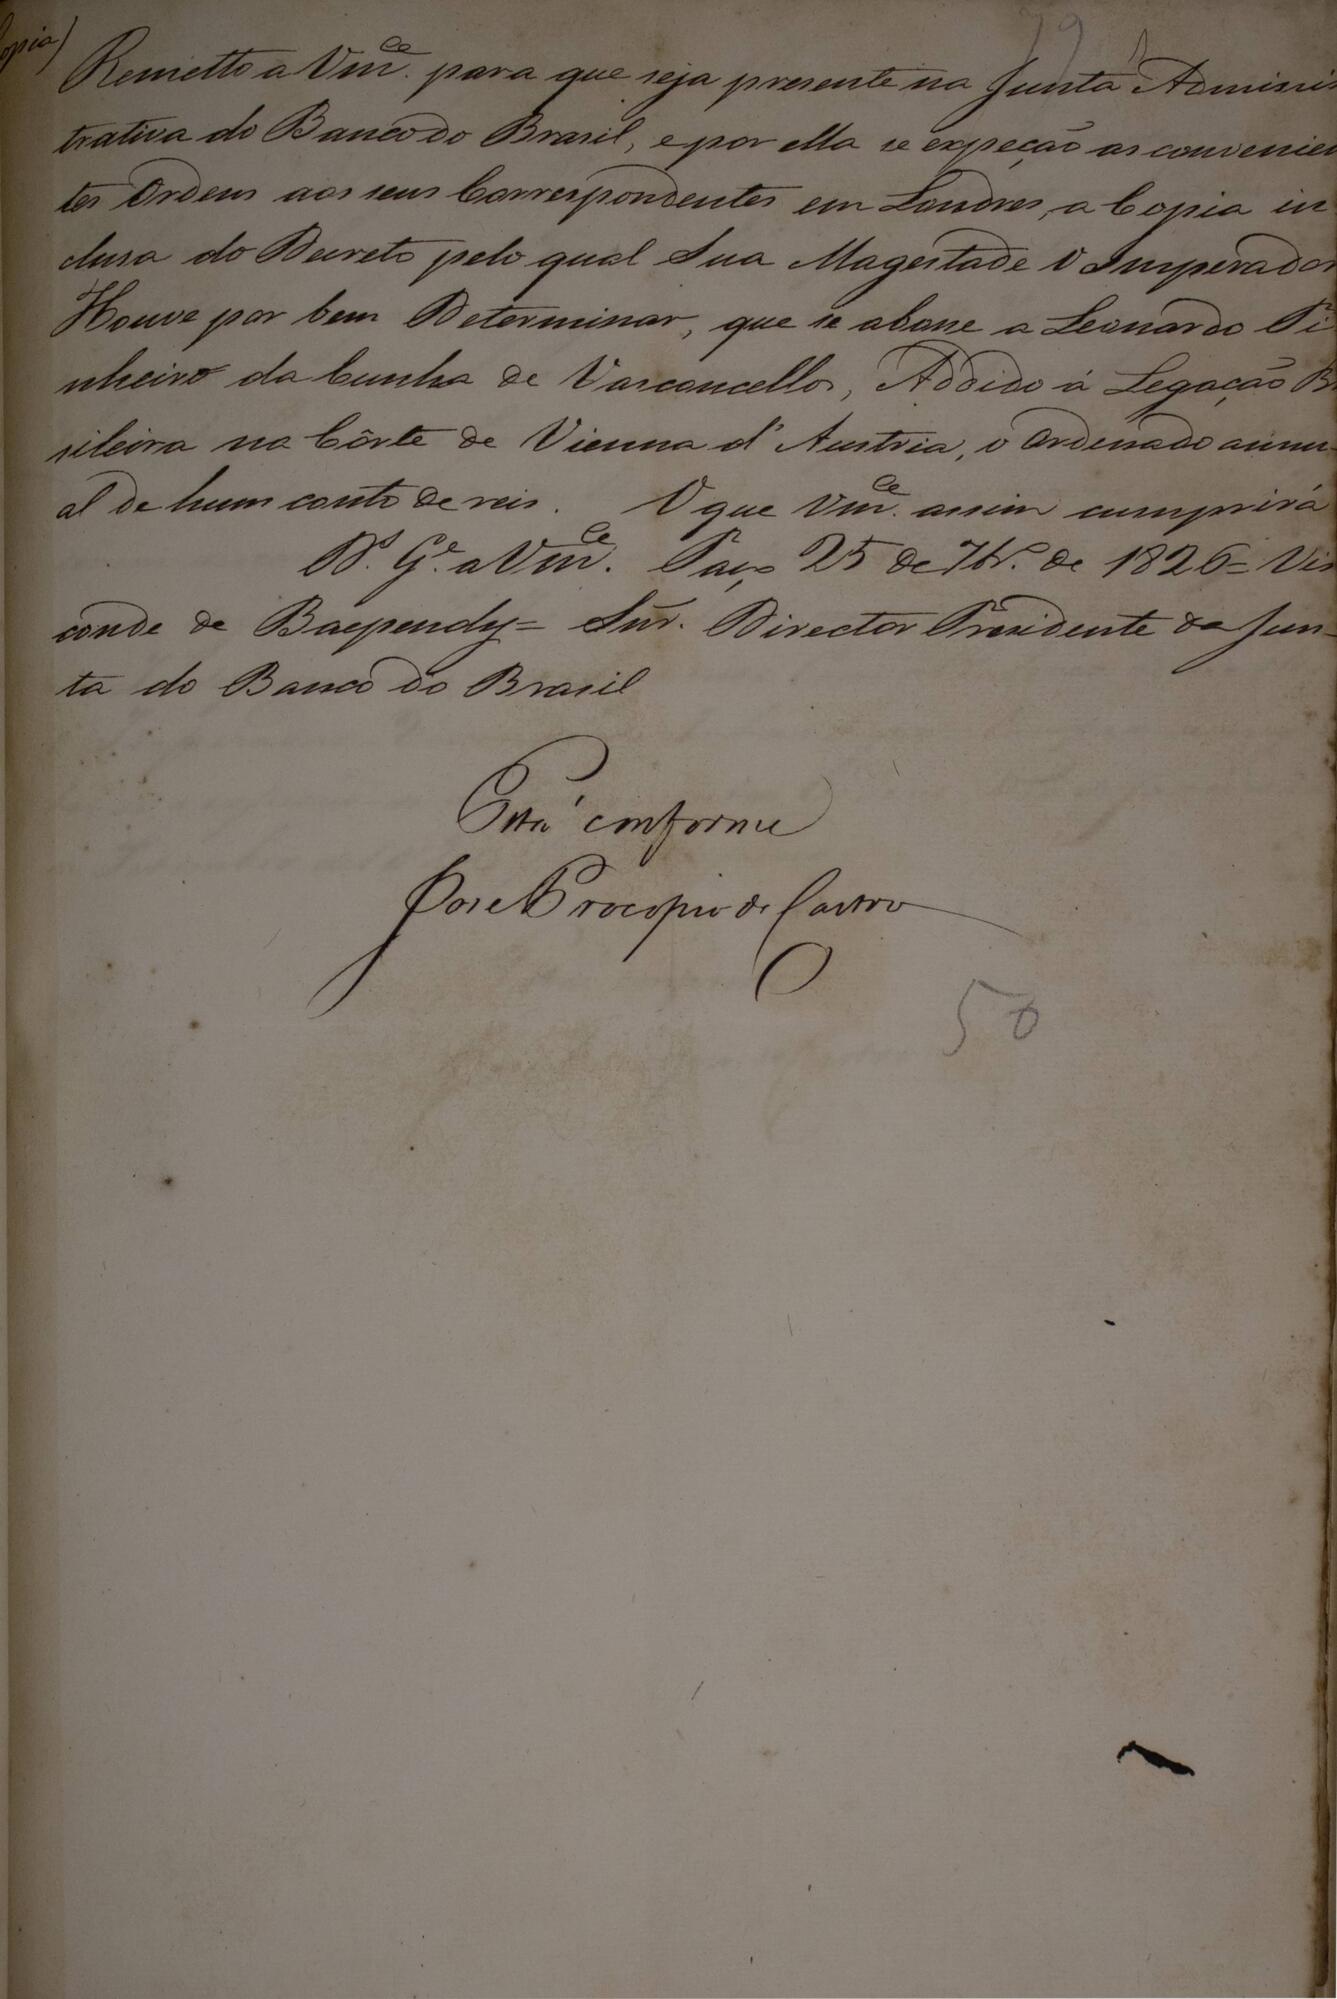 opia)
79
Remetto a Vm.ce para que seja presente na Junta Adminis
trativa do Banco do Brasil, e por ella se expeção as convenien
tes Ordens aos seus Correspondentes em Londres, a Copia in
clusa do Decreto pelo qual Sua Magestade O Imperador
Houve por bem Determinar, que se abone a Leonardo Pi
nheiro da Cunha de Vasconcellos, Addido á Legação B
sileira na Côrte de Vienna d'Austria, o Ordenado annu-
al de hum conto de reis. O que Vm.ce assim cumprirá
D.s G.e a Vm.ce Paço 25 de 7br.o de 1826 = Vis
conde de Baependy = Snr. Director Presidente da Jun-
ta do Banco do Brasil
Está conforme
José Procopio de Castro
50